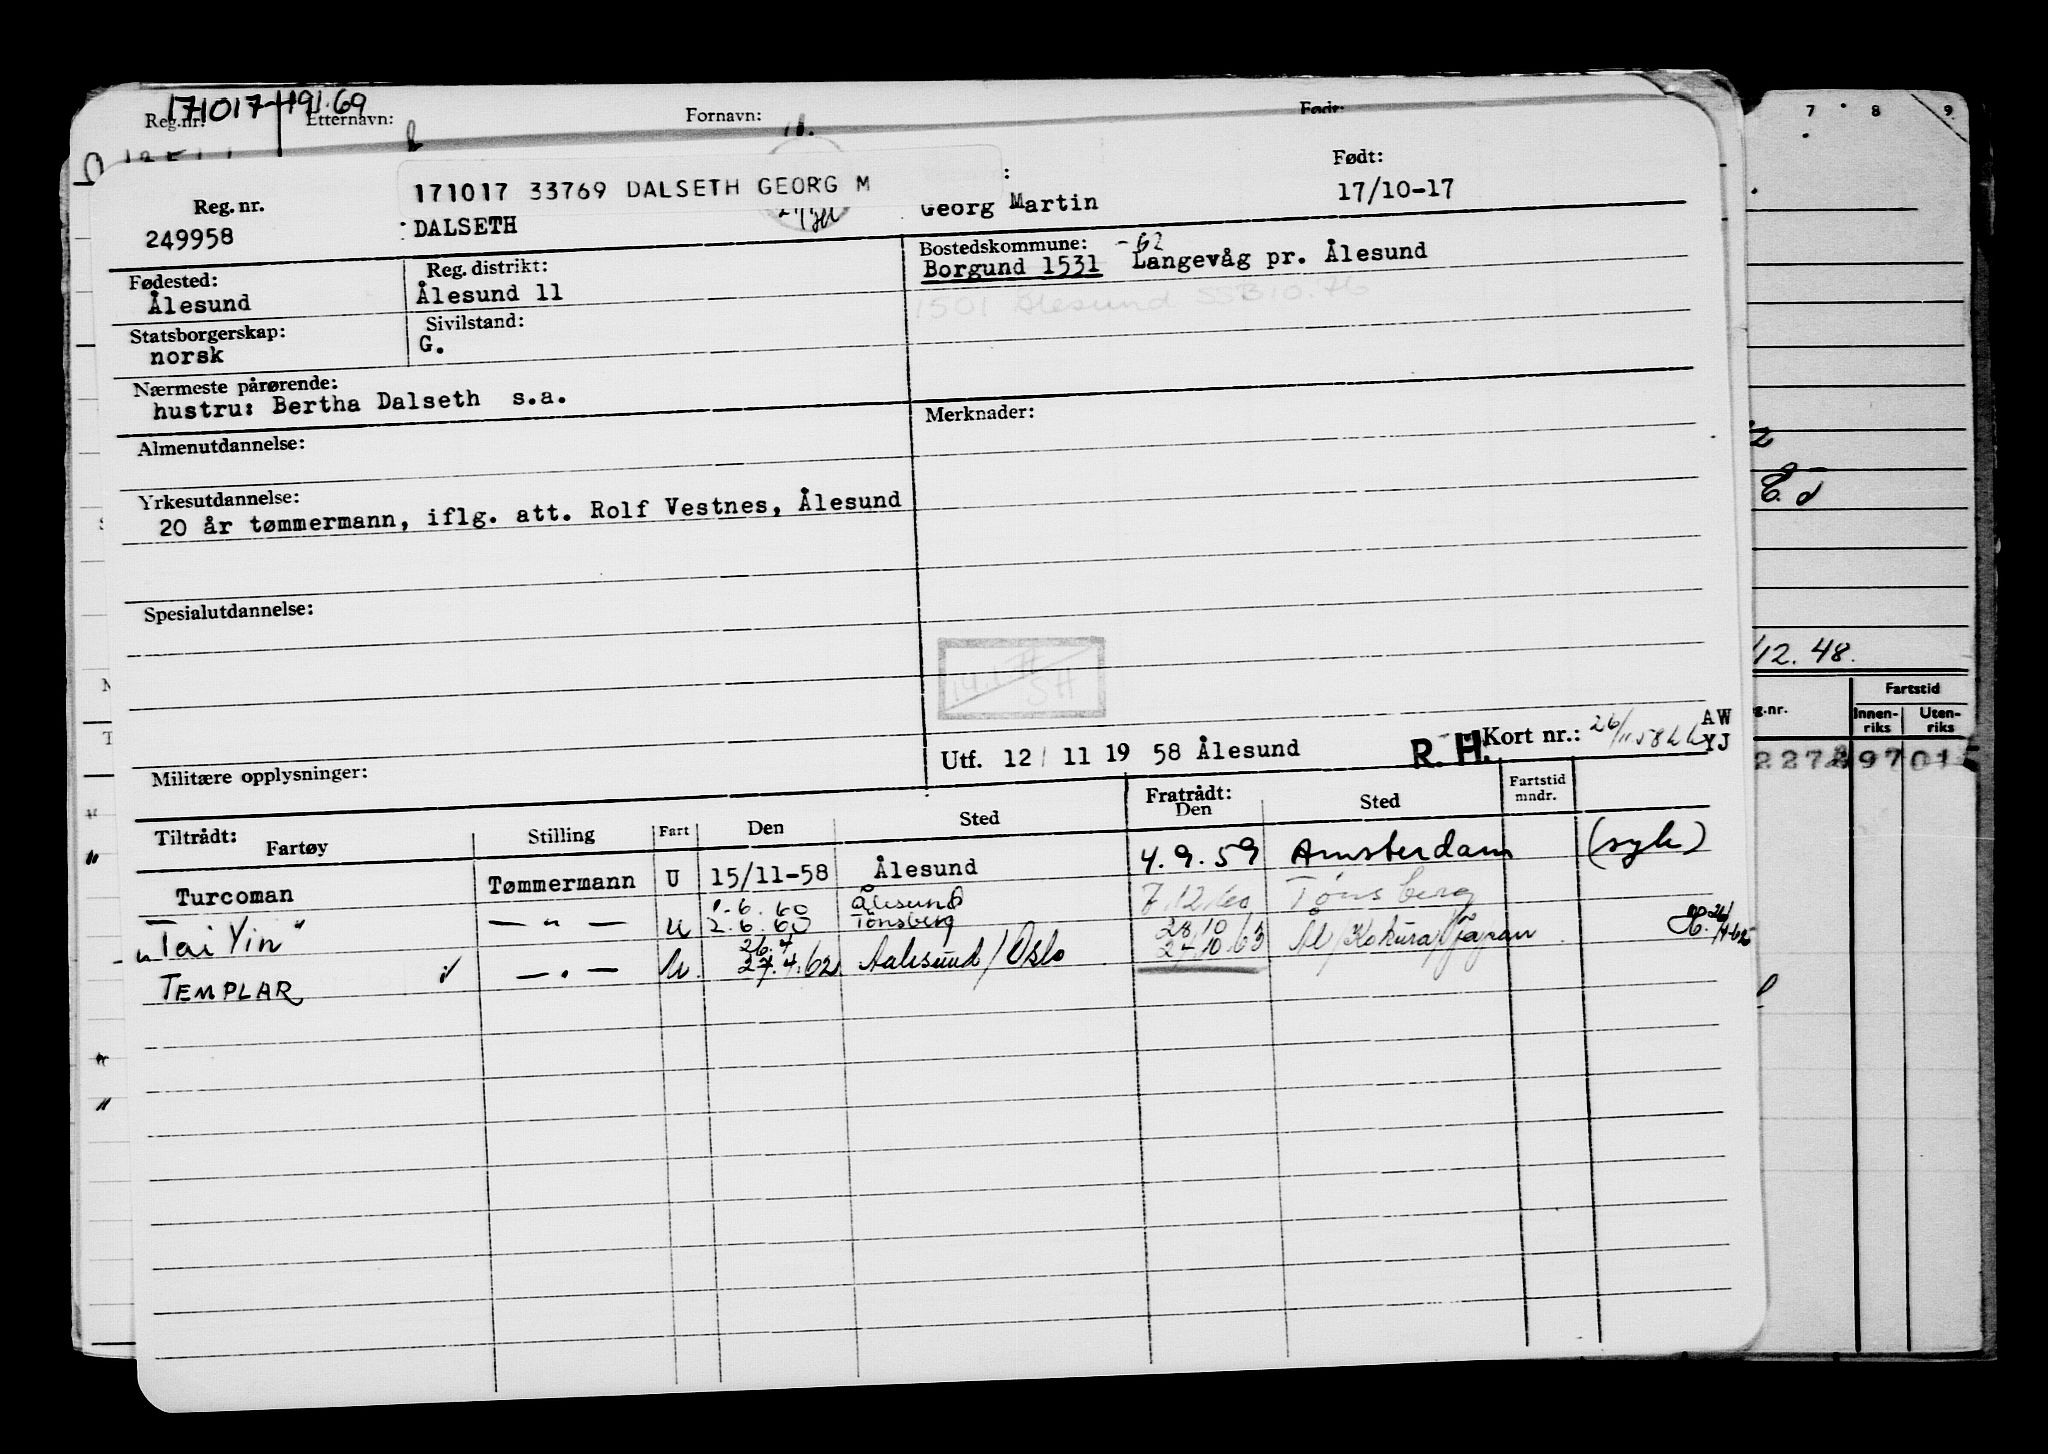 171017
Reg.nr. Etternavn: Fornavn: Født:
7 8 9
171017 33769 DALSETH GEORG M
Født:
Reg. nr. Georg Martin 17/10-17
249958 DALSETH
Fødested: Reg. distrikt: Bostedskommune: -62
Ålesund Ålesund 11 Borgund 1531 Langevåg pr. Ålesund
1501 Ålesund SSB 10.76
Statsborgerskap: Sivilstand:
norsk G.
Nærmeste pårørende:
hustru: Bertha Dalseth s.a.
Merknader:
Almenutdannelse:
Yrkesutdannelse:
20 år tømmermann, iflg. att. Rolf Vestnes, Ålesund
Spesialutdannelse:
Utf. 12/ 11 19 58 Ålesund R. H. Kort nr.: AW
YJ
Militære opplysninger:
Tiltrådt: Fratrådt: Fartstid
Fartøy Stilling Fart Den Sted Den Sted mndr.
Turcoman Tømmermann U 15/11-58 Ålesund 4.9.59 Amsterdam (syk)
1.6.60 Ålesund
"Tai Yin" — " — U 2.6.60 Tønsberg 7.12.60 Tønsberg
26.4 28.10
TEMPLAR — " — U. 27.4.62 Aalesund/Oslo 27.10.63 Ål/Kokura/Japan
12.48.
Fartstid
Innen- Uten-
riks riks